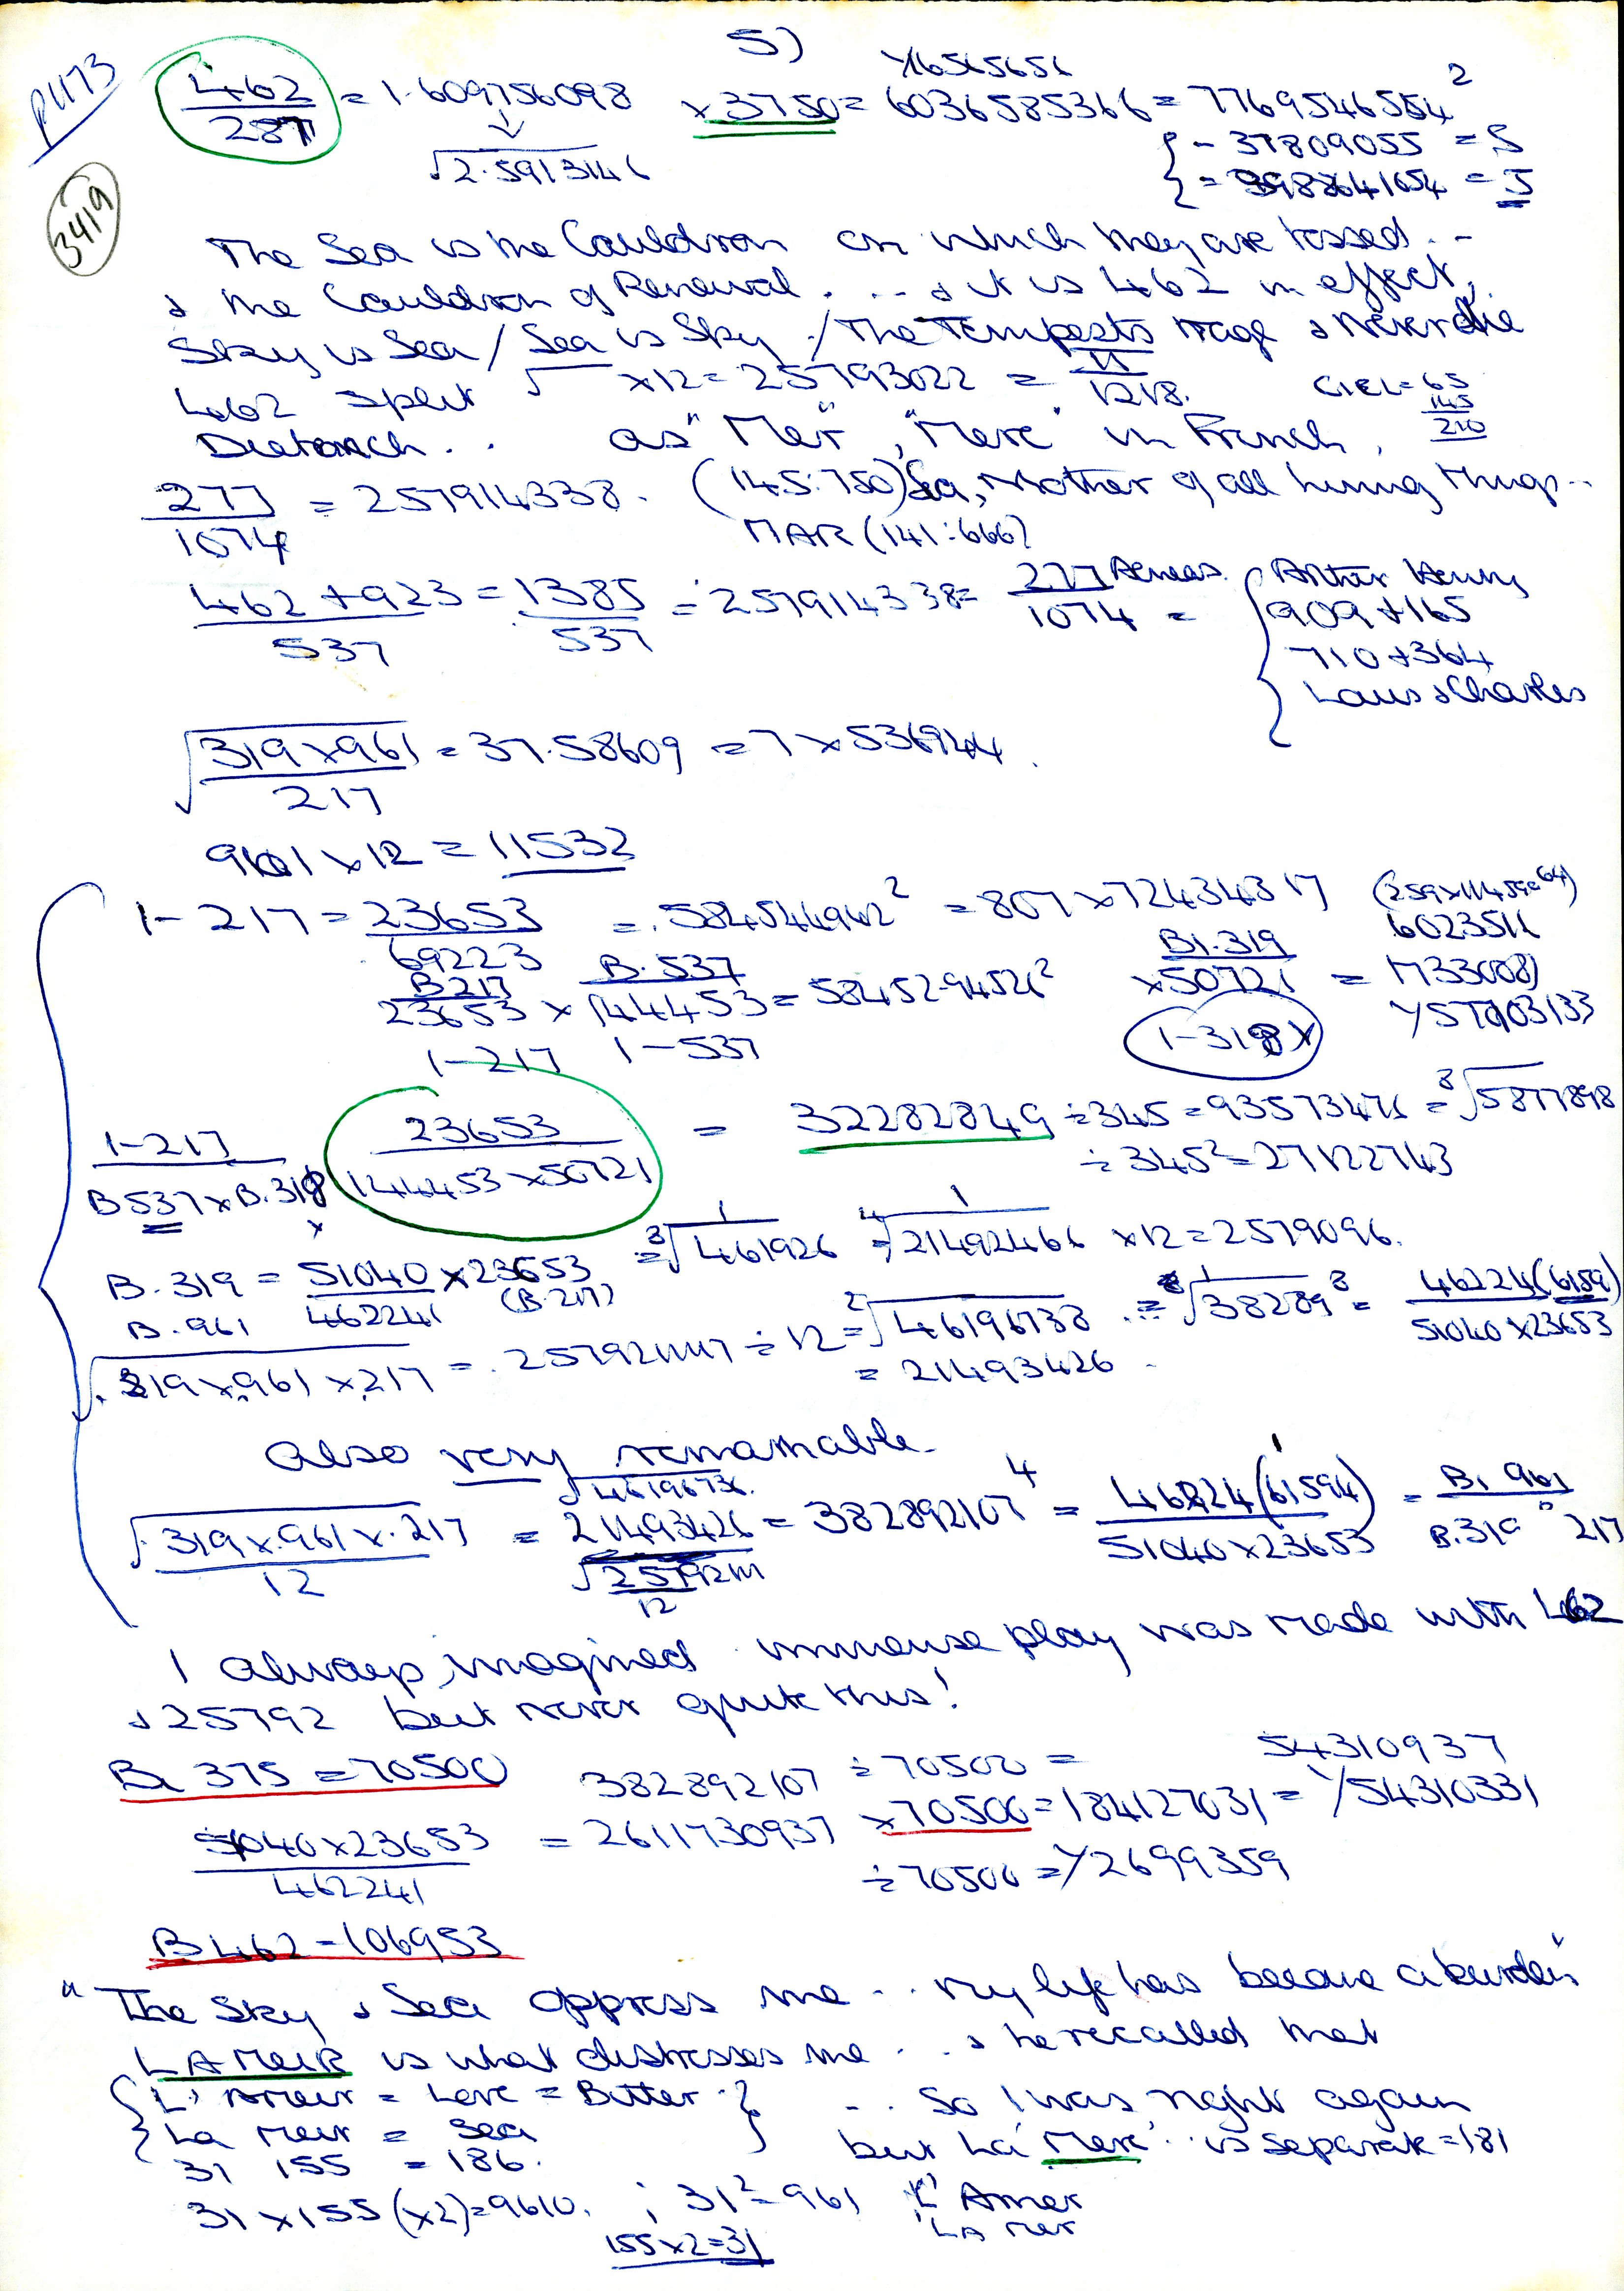 5)
P1173
3419
462/287 = 1.609756098 × 3750 = 6036585366 = 7769546554²
1/16565656
√2.5913146
{ - 37809055 = S
The Sea is the Cauldron on which they are tossed...
& the Cauldron of Renewal.... & it is 462 in effect,
Sky is Sea / Sea is Sky / The Tempests rage & never die
462 split √ ×12 = 25793022 = π/1218. CIEL = 65
145
210
as "Mer", "Mere" in French.
277/1074 = 257914338. (145:750) Sea, Mother of all living things...
MAR (141:666)
462+923/537 = 1385/537 = 257914338 = 277/1074 Aeneas = { Arthur Henry
909+165
710+364
Louis & Charles
√319×961/217 = 37.58609 = 7 × 536944.
961 × 12 = 11532
1-217 = 23653/69223 = .584544942² = 807 × 72434317 (259×11459=64)
6023511
B217 B.537 B1.319
23653 × 144453 = 58452.94526² × 50721 = 1733(008)
1-217 1-537 1-318 X Y57703133
1-217/B537×B.318 23653/144453×50721 = 32282849 ÷345 = 93573476 = ³√5877898
÷345² = 27122743
B.319/B.961 = 51040×23653/462241 (B.217) = ³√1/461926 = ⁴√1/21492466 ×12 = 2579096.
√.319×.961×.217 = .257921147 ÷ 12 = ²√46196738 = ⁸√1/38289⁸ = 46224(6159)/51040×23653
= 21493426
Also very remarkable.
√46196736.
√.319×.961×.217/12 = 21493426 = 382892107⁴ = 46224(61594)/51040×23653 = B1 961/B.319 217
25792111/12
I always imagined immense play was made with 462
& 25792 but never quite this!
B1 375 = 70500 382892107 ÷70500 = 54310937
51040×23653/462241 = 2611730937 ×70500 = 184127031 = 1/54310331
÷70500 = 1/2699359
B 462 = 106953
"The Sky & Sea oppress me... my life has become a burden"
LA MEIR is what distresses me... & he recalled that
{ L'Ameir = Love = Bitter } ... So I was right again
La Meir = Sea but La 'Mere' is separate = 181
31 155 = 186.
31 × 155 (×2) = 9610. ; 31² = 961 L'Amer
LA Mer
155×2=31